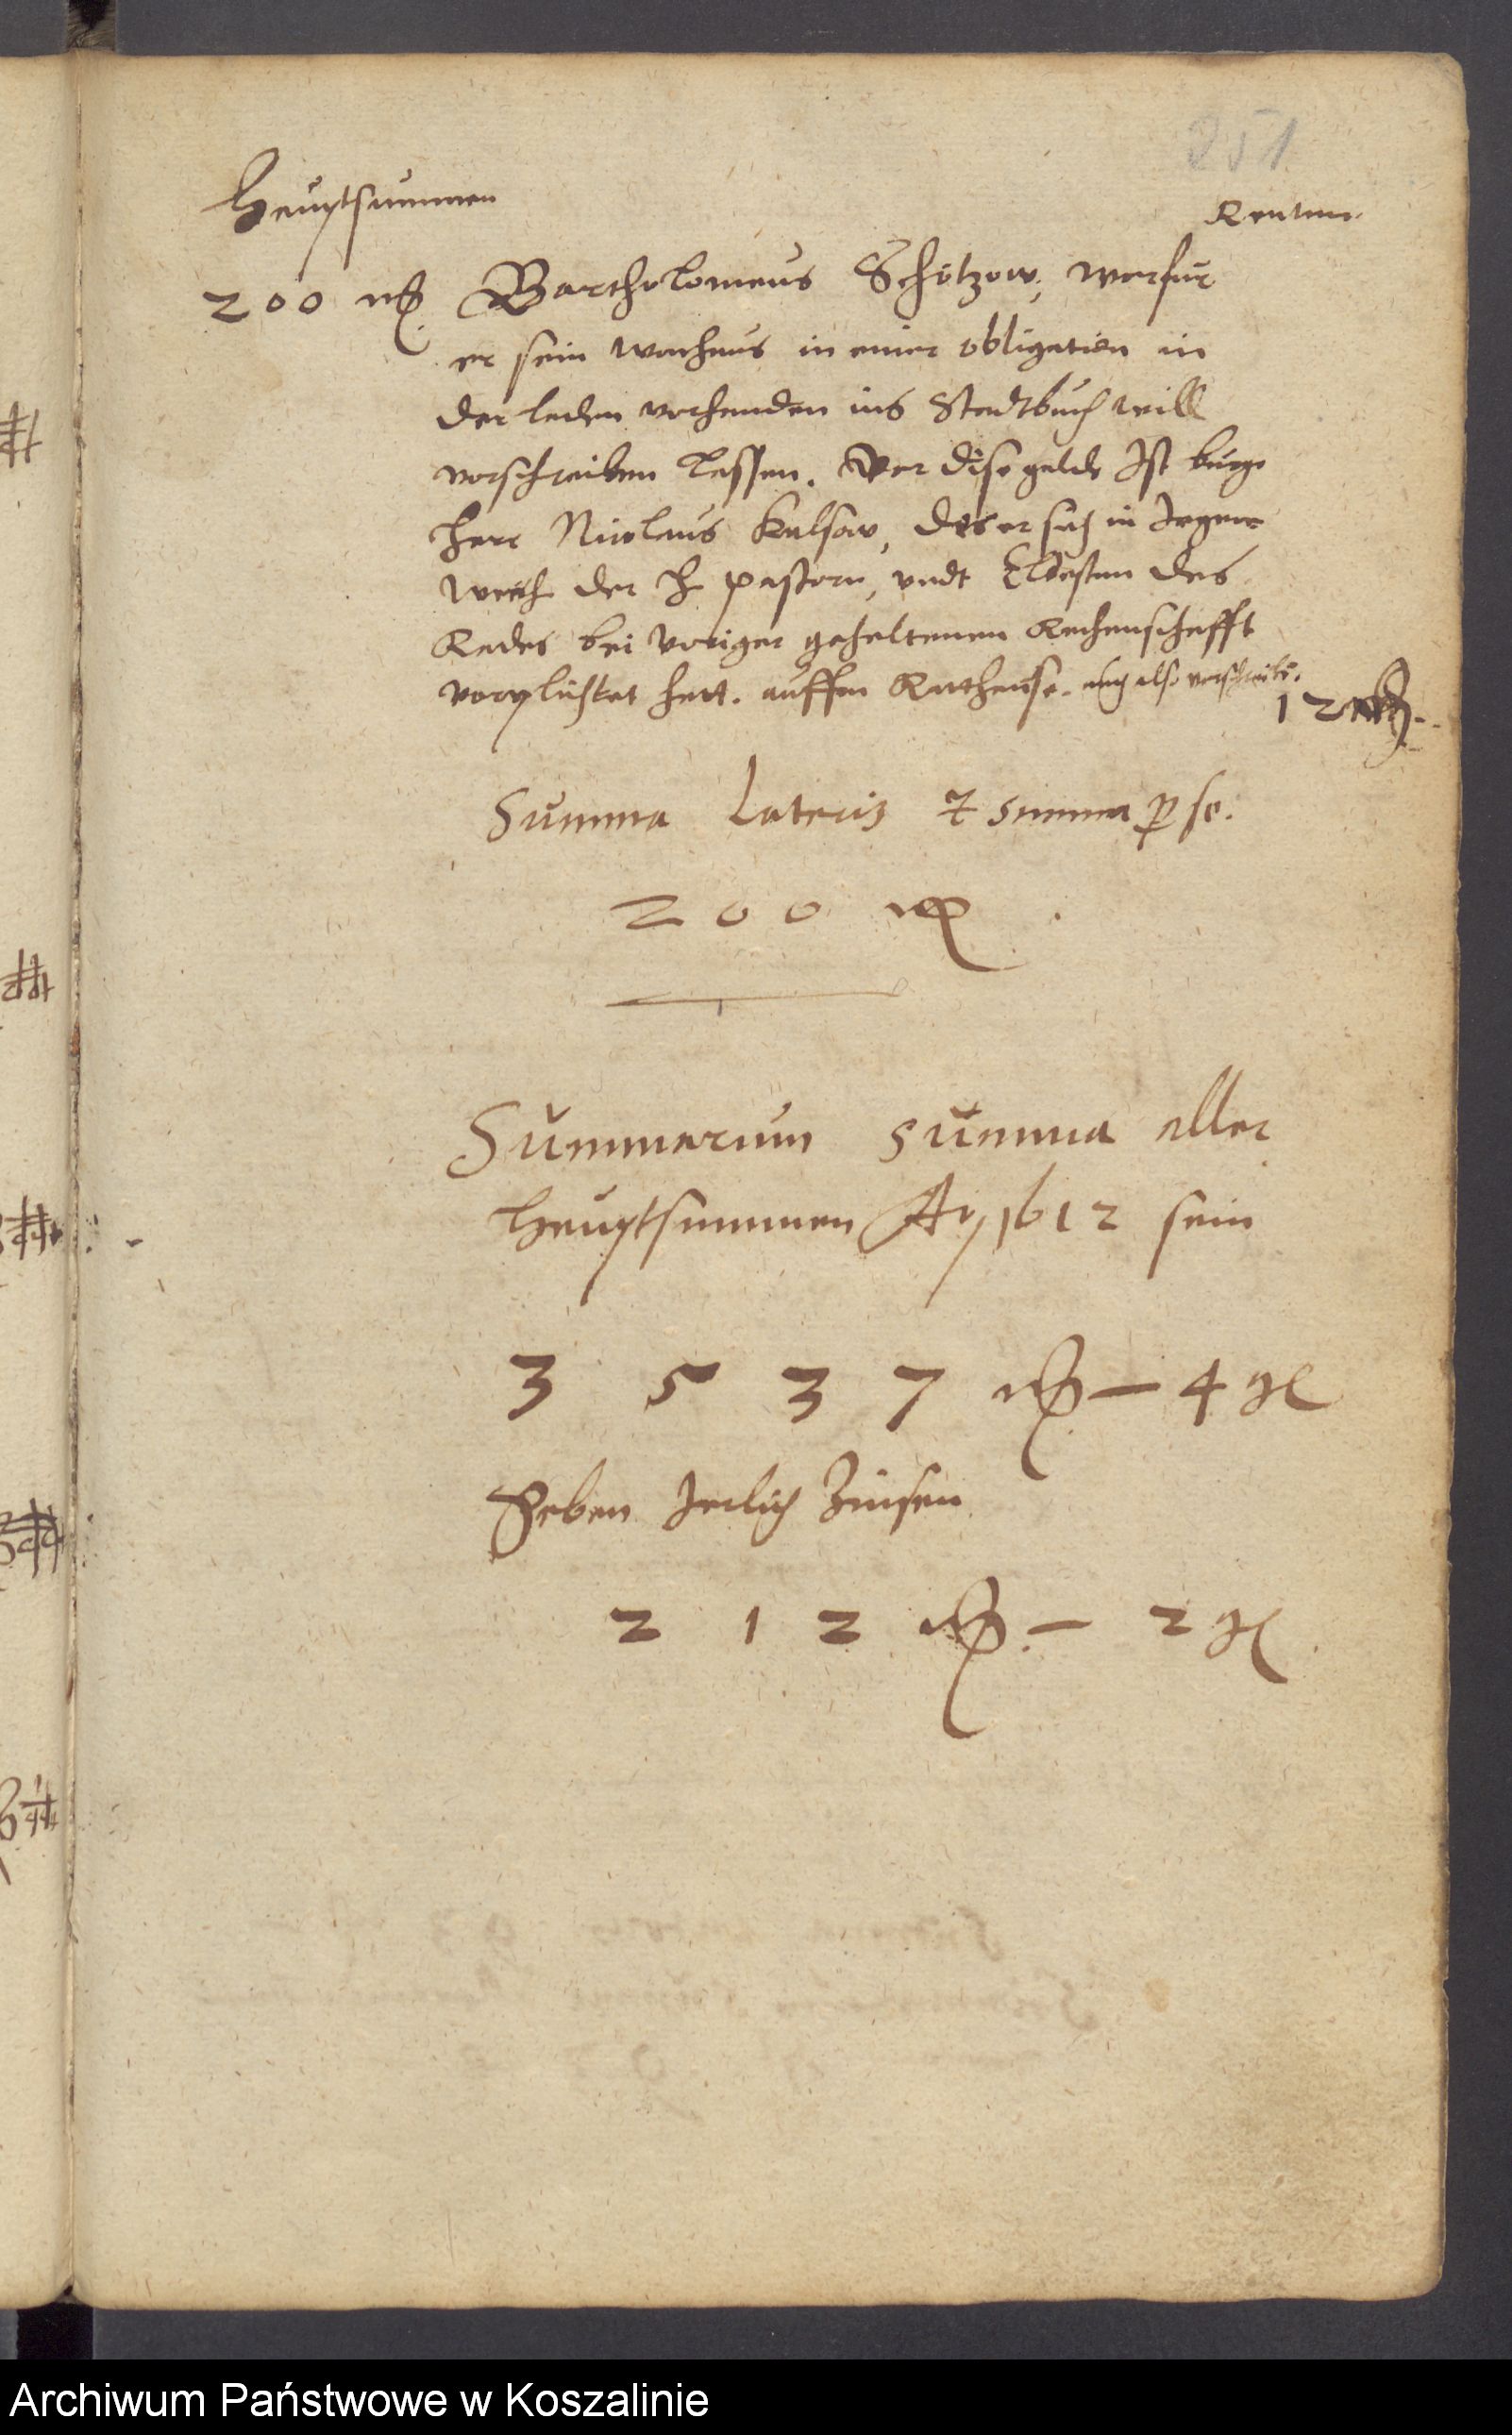 351
Heuptsummen
Renten
200 mk Bartholomeus Schötzow, worfur
er sein wonhaus in einer obligation in
der laden vorhanden ins Stadtbuch will
vorschreiben lassen. Vor dise gelde Ist burge
Herr Nicolaus Kulsow, des er sich in Jegen
wert der H pastorn, undt Eldesten des
Rades bei voriger gehaltenen Rechenschafft
vorplichtet hatt. auffen Rathause. auch also vorschreibē.
12 mk
Summa Lateris et summa p se.
200 mk
Summarum summa aller
Heuptsummen Ao 1612 sein
3537 mk — 4 gl
Haben Jerlich Zinsen
212 mk — 2 gl
Archiwum Państwowe w Koszalinie